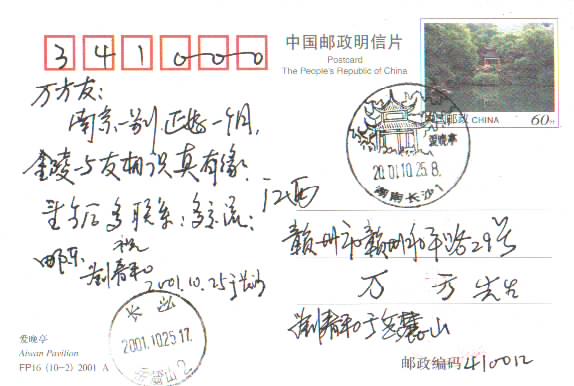 341000
中国邮政明信片
Postcard
The People's Republic of China
中国邮政 CHINA
60分
爱晚亭
2001.10.25.8
湖南长沙1
万方友:
南京一别,正好一个月,
金陵与友相识真有缘,
望今后多联系;多交流;
祝
邮乐。
刘春和
2001.10.25于长沙
江西
赣州市赣州市平路29号
万方 先生
刘春和于岳麓山
邮政编码410012
长沙
2001.10.25.17
岳麓山2
爱晚亭
Aiwan Pavilion
FP16 (10-2) 2001 A